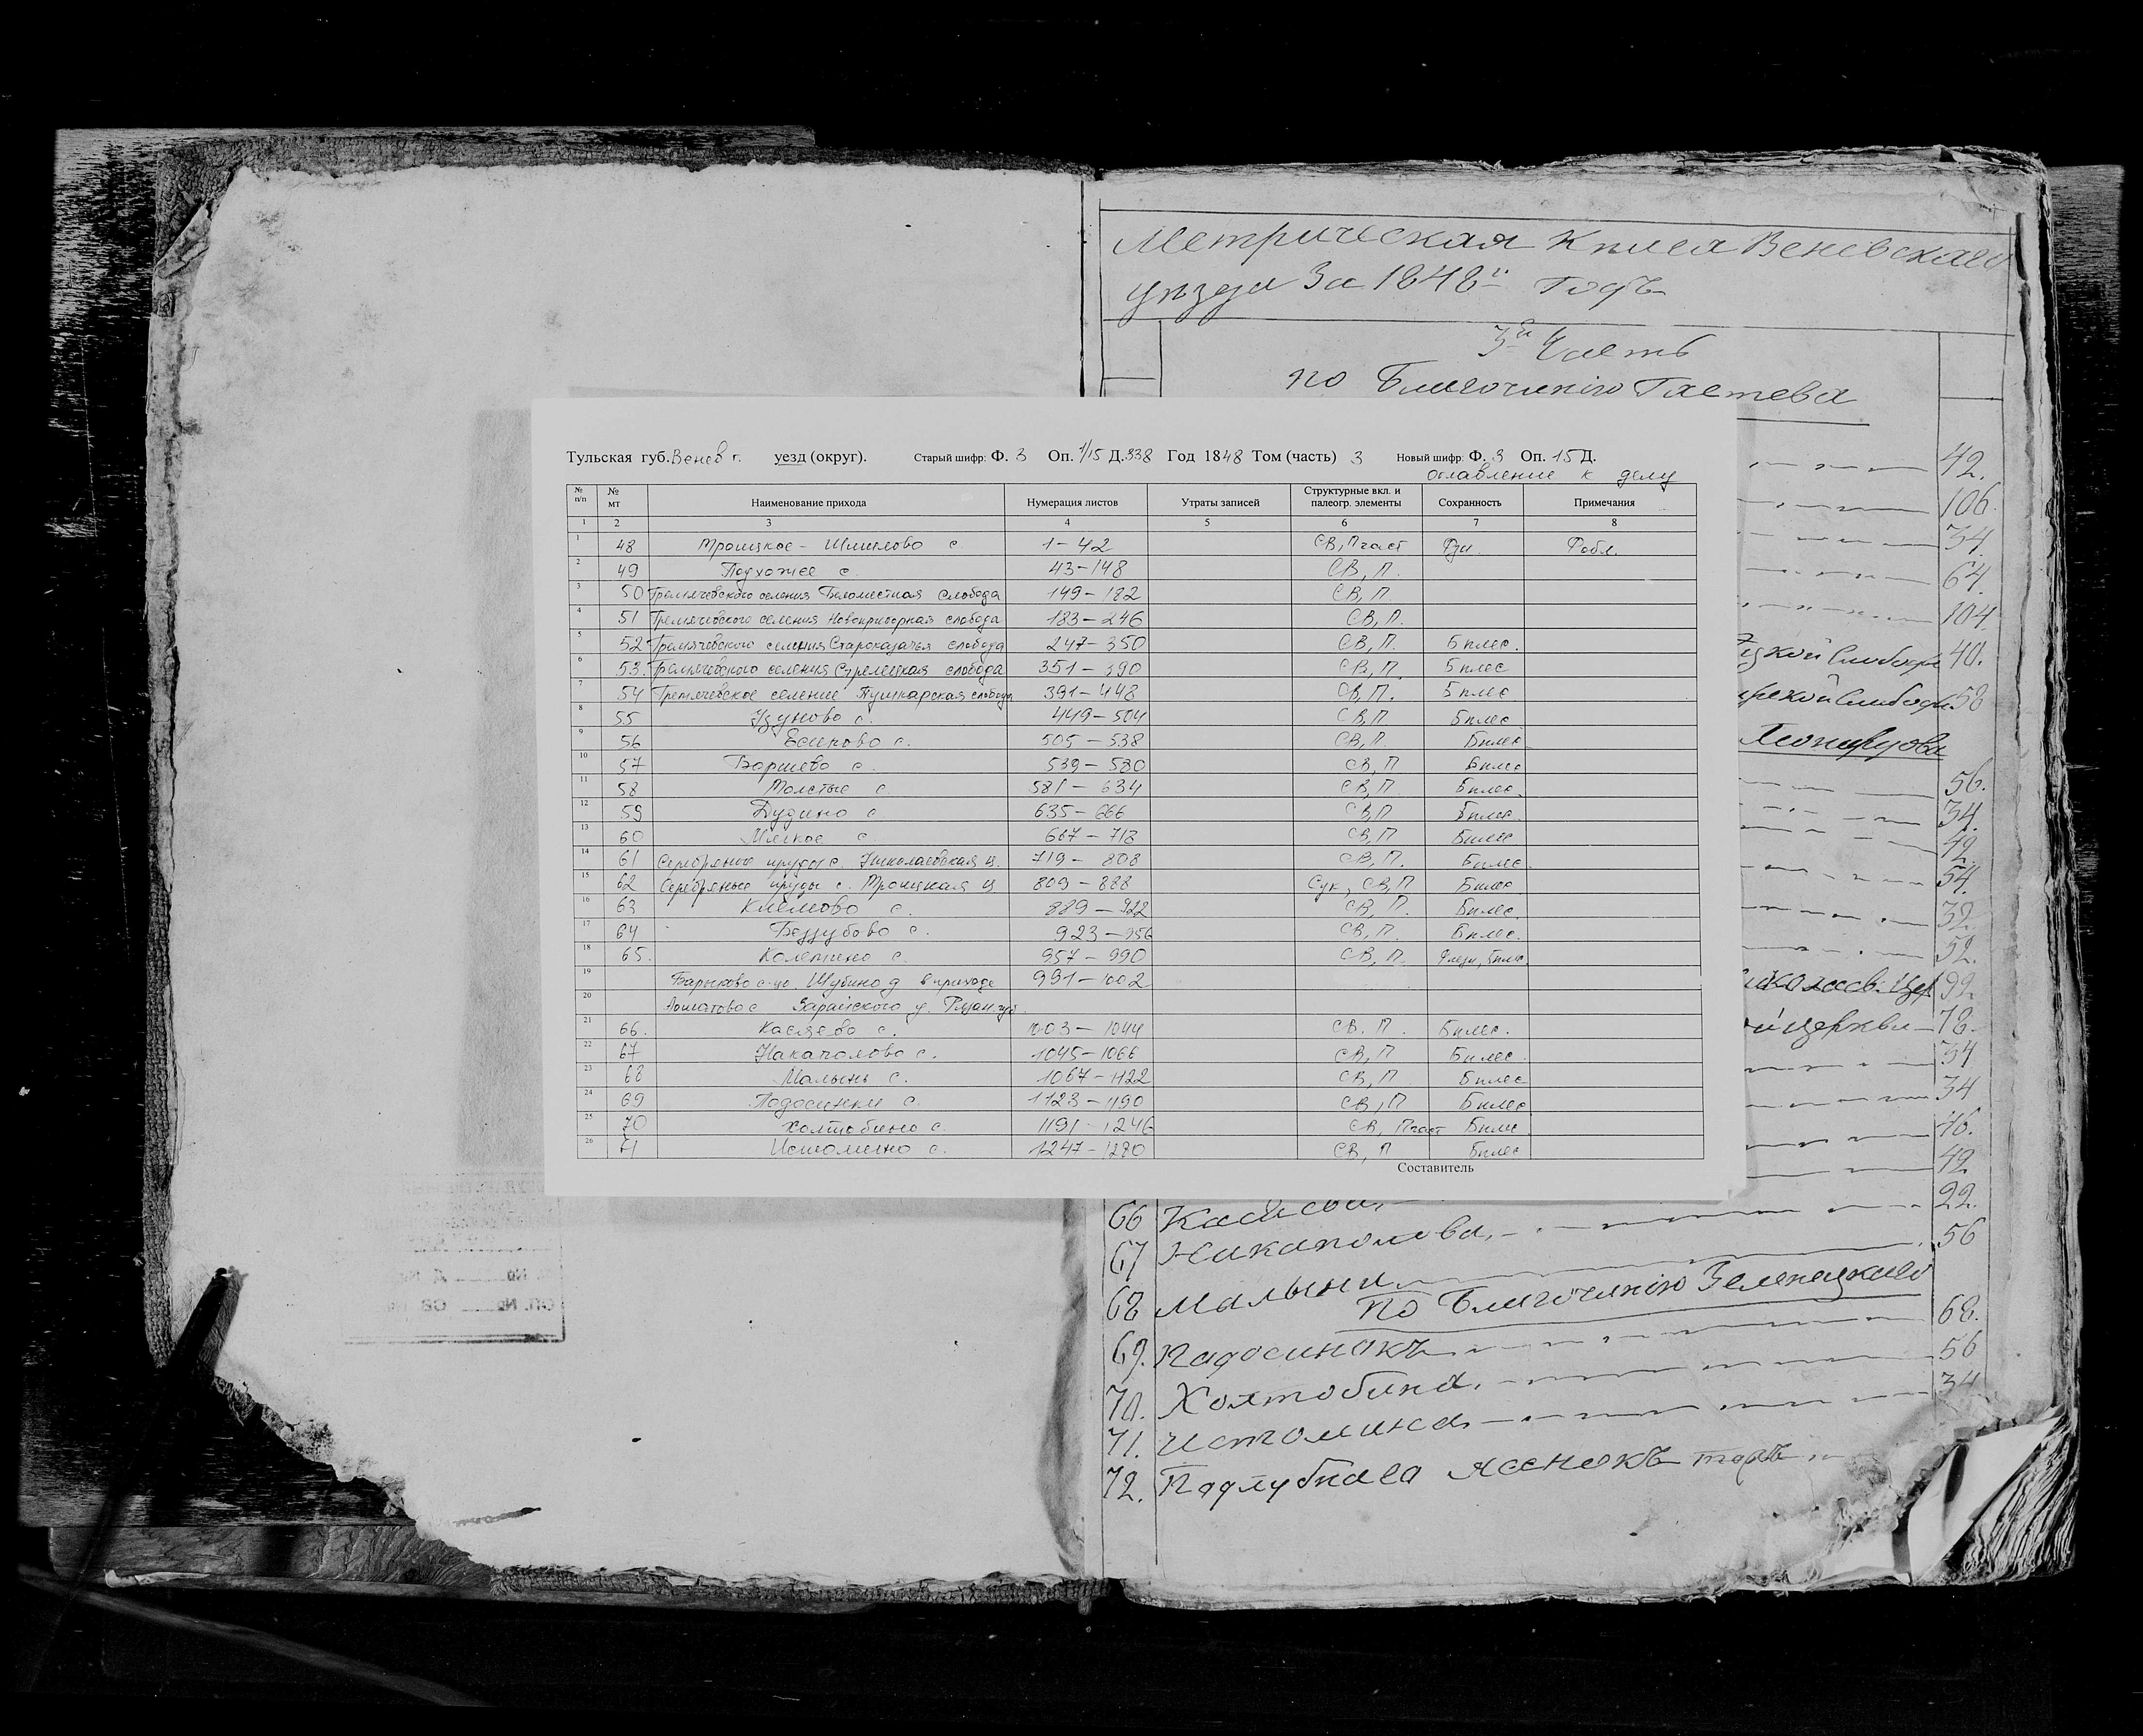 Метрическая Книга Веневскаго
уѣзда За 1848й Годъ
3я Часть
по Благочинію Гастева
Тульская губ. Венев г. уезд (округ). Старый шифр: Ф. 3 Оп. 1/15 Д. 338 Год 1848 Том (часть) 3 Новый шифр: Ф. 3 Оп. 15 Д.
оглавление к делу
№ п/п № мт Наименование прихода Нумерация листов Утраты записей Структурные вкл. и палеогр. элементы Сохранность Примечания
1 2 3 4 5 6 7 8
1 48 Троицкое - с. 1-42 СВ, Пчаст
2 49 Подхожее с. 43-148 СВ, П.
3 50 Гремячевского селения Беломестная слобода 149-182 СВ, П.
4 51 Гремячевского селения Новоприборная слобода 183-246 СВ, П.
5 52 Гремячевского селения Староказачья слобода 247-350 СВ, П. Бплес.
6 53. Гремячевского селения Стрелецкая слобода 351-390 СВ, П. Бплес
7 54 Гремячевское селение Пушкарская слобода 391-448 СВ, П. Бплес
8 55 Узуново с. 449-504 СВ, П Бплес
9 56 Есипово с. 505-538 СВ, П. Бплес
10 57 Боршево с. 539-580 СВ, П Бплес
11 58 Толстые с 581-634 СВ, П. Бплес.
12 59 Дудино с. 635-666 СВ, П Бплес.
13 60 Мягкое с 667-718 СВ, П Бплес
14 61 Серебряные пруды с. Николаевская ц. 719-808 СВ, П. Бплес
15 62 Серебряные пруды с. Троицкая ц 809-888 Сук, СВ, П Бплес
16 63 Клемово с. 889-922 СВ, П. Бплес.
17 64 Беззубово с. 923-956 СВ, П. Бплес.
18 65. Колетино с. 957-990 СВ, П. Бплес
19 с-цо, Шубино д в приходе 991-1002
20 с Зарайского у. Рязан.губ.
21 66. Касяево с. 1003-1044 СВ. П. Бплес.
22 67 Накаполово с. 1045-1066 СВ, П Бплес.
23 68 Малынь с. 1067-1122 СВ, П Бплес
24 69 Подосинки с. 1123-1190 СВ, П Бплес
25 70 Холтобино с. 1191-1246 СВ, Пчаст Бплес
26 71 Истомино с. 1247-1280 СВ, П Бплес
Составитель
42.
106.
34.
64.
104
цкой Слободы 40.
Слободы 58
56.
34.
42.
54.
32.
52.
Николаев. Цер 92.
ой церкви 78.
34
34
46.
42
66 22.
67 Накаполова, 56
68 Малыни
По Благочинію Зеленецкаго
69. Падосинокъ 68.
70. Холтобина. 56
71. Истомина 34
72. Падлубнаго Ясенокъ